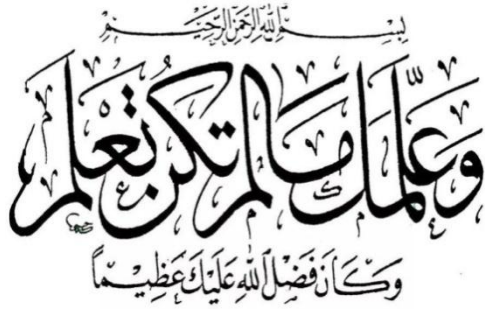 بسم الله الرحمن الرحيم
وَعَلَّمَكَ مَا لَمْ تَكُنْ تَعْلَمُ
وَكَانَ فَضْلُ اللهِ عَلَيْكَ عَظِيمًا